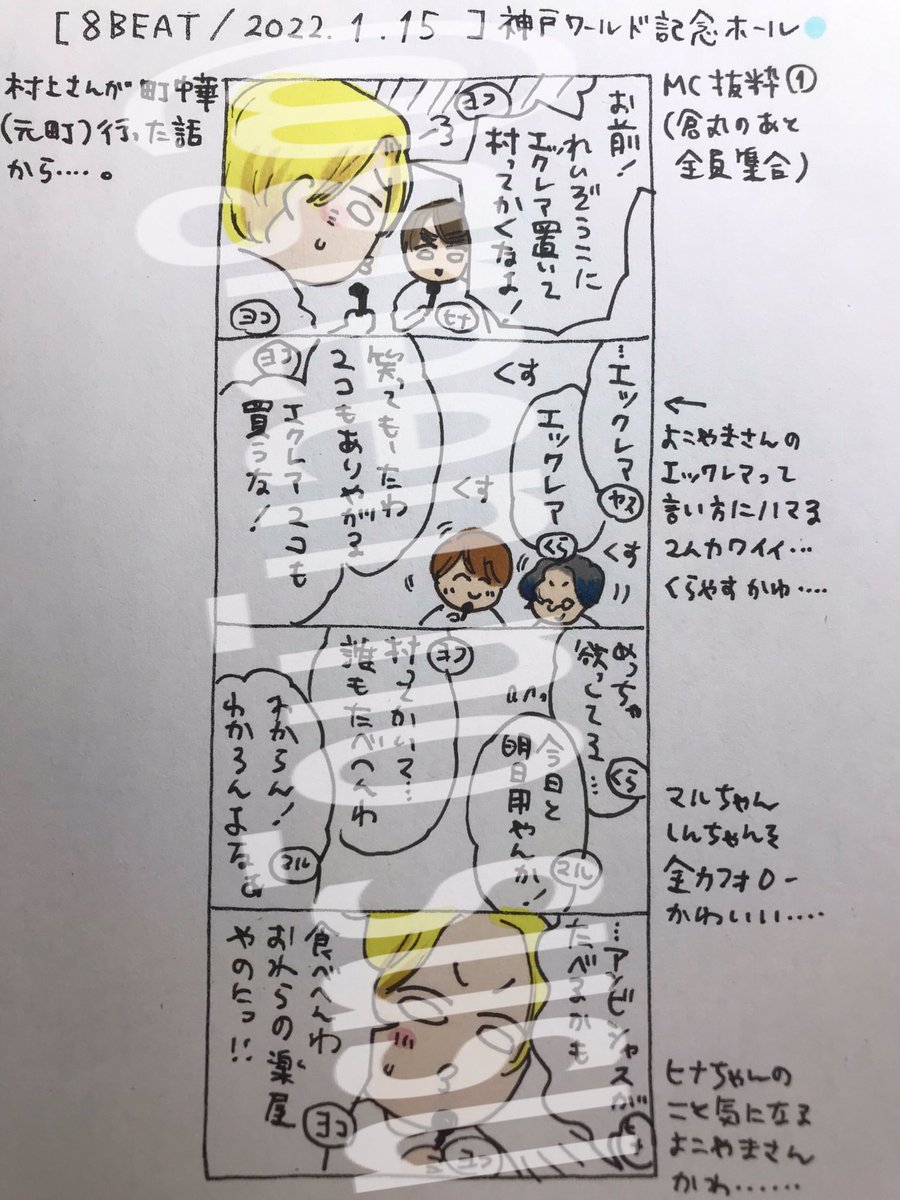 [8BEAT/2022.1.15]神戸ワールド記念ホール
MC抜粋①
(倉丸のあと
全員集合)
村上さんが町中華
(元町)行った話
から‥‥。
お前!
れいぞうこに
エックレア置いて
村ってかくなよ!
ヨコ
ヨコ
ヒナ
…エックレア
ヤス
エックレア
くら
くす
くす
くす
笑ってもーたわ
2コもありやがる
エクレア2コも
買うな!
ヨコ
←
よこやまさんの
エックレアって
言い方にハマる
2人カワイイ…
くらやすかわ‥‥
めっちゃ
欲してる…
くら
今日と
明日用やんか!
マル
村ってかいて…
誰もたべへんわ
ヨコ
わからん!
わからんよなぁ
マル
マルちゃん
しんちゃんを
全力フォロー
かわいい‥‥
…アンビシャスが
たべるかも
ヒナ
食べへんわ
おれらの楽屋
やのにっ!!
ヨコ
ヨコ
ヒナちゃんの
こと気になる
よこやまさん
かわ‥‥‥